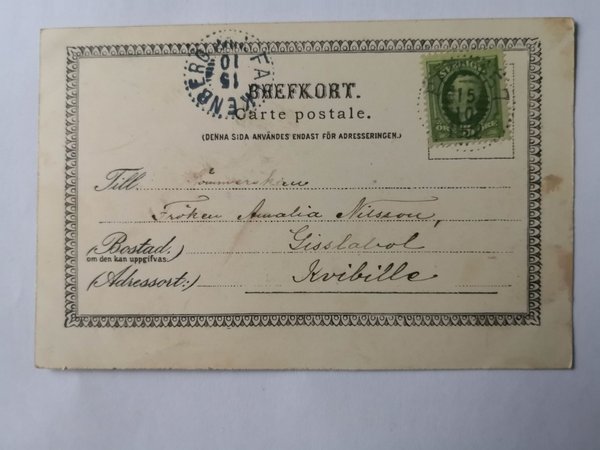 FALKENBERG
15
10
BREFKORT.
Carte postale.
(DENNA SIDA ANVÄNDES ENDAST FÖR ADRESSERINGEN.)
15
10
ÖRE 5 ÖRE
Till Sömmerskan
Fröken Amalia Nilsson,
(Bostad.)
om den kan uppgifvas.
Gisslabol
(Adressort:) Kvibille